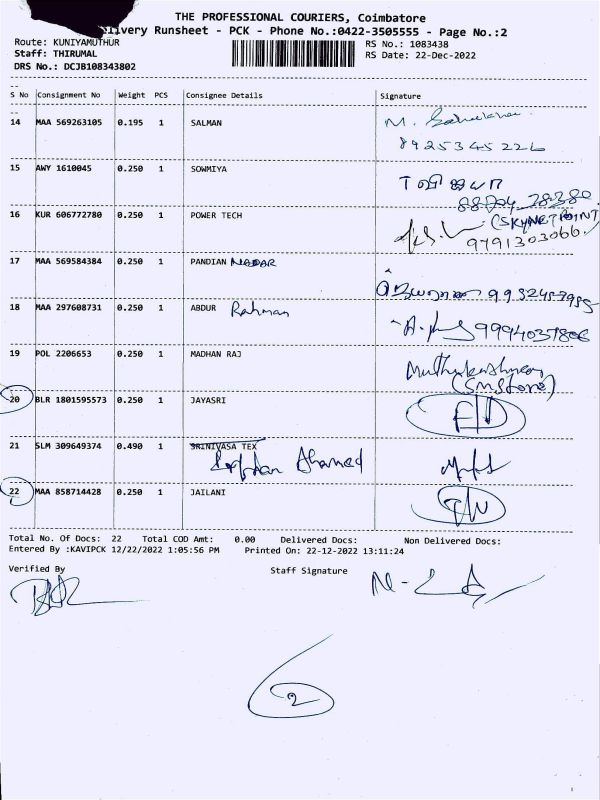 THE PROFESSIONAL COURIERS, Coimbatore
Delivery Runsheet - PCK - Phone No.:0422-3505555 - Page No.:2
Route: KUNIYAMUTHUR RS No.: 1083438
Staff: THIRUMAL RS Date: 22-Dec-2022
DRS No.: DCJB108343802
S No Consignment No Weight PCS Consignee Details Signature
14 MAA 569263105 0.195 1 SALMAN M.
8925345226
15 AWY 1610045 0.250 1 SOWMIYA
88704 78380
16 KUR 606772780 0.250 1 POWER TECH (SKYNET POINT)
9791303066
17 MAA 569584384 0.250 1 PANDIAN NADAR
18 MAA 297608731 0.250 1 ABDUR Rahman 9994037806
19 POL 2206653 0.250 1 MADHAN RAJ Muthukrishnan
(SM Store)
20 BLR 1801595573 0.250 1 JAYASRI
21 SLM 309649374 0.490 1 SRINIVASA TEX
Ahamed
22 MAA 858714428 0.250 1 JAILANI
Total No. Of Docs: 22 Total COD Amt: 0.00 Delivered Docs: Non Delivered Docs:
Entered By :KAVIPCK 12/22/2022 1:05:56 PM Printed On: 22-12-2022 13:11:24
Verified By Staff Signature
2